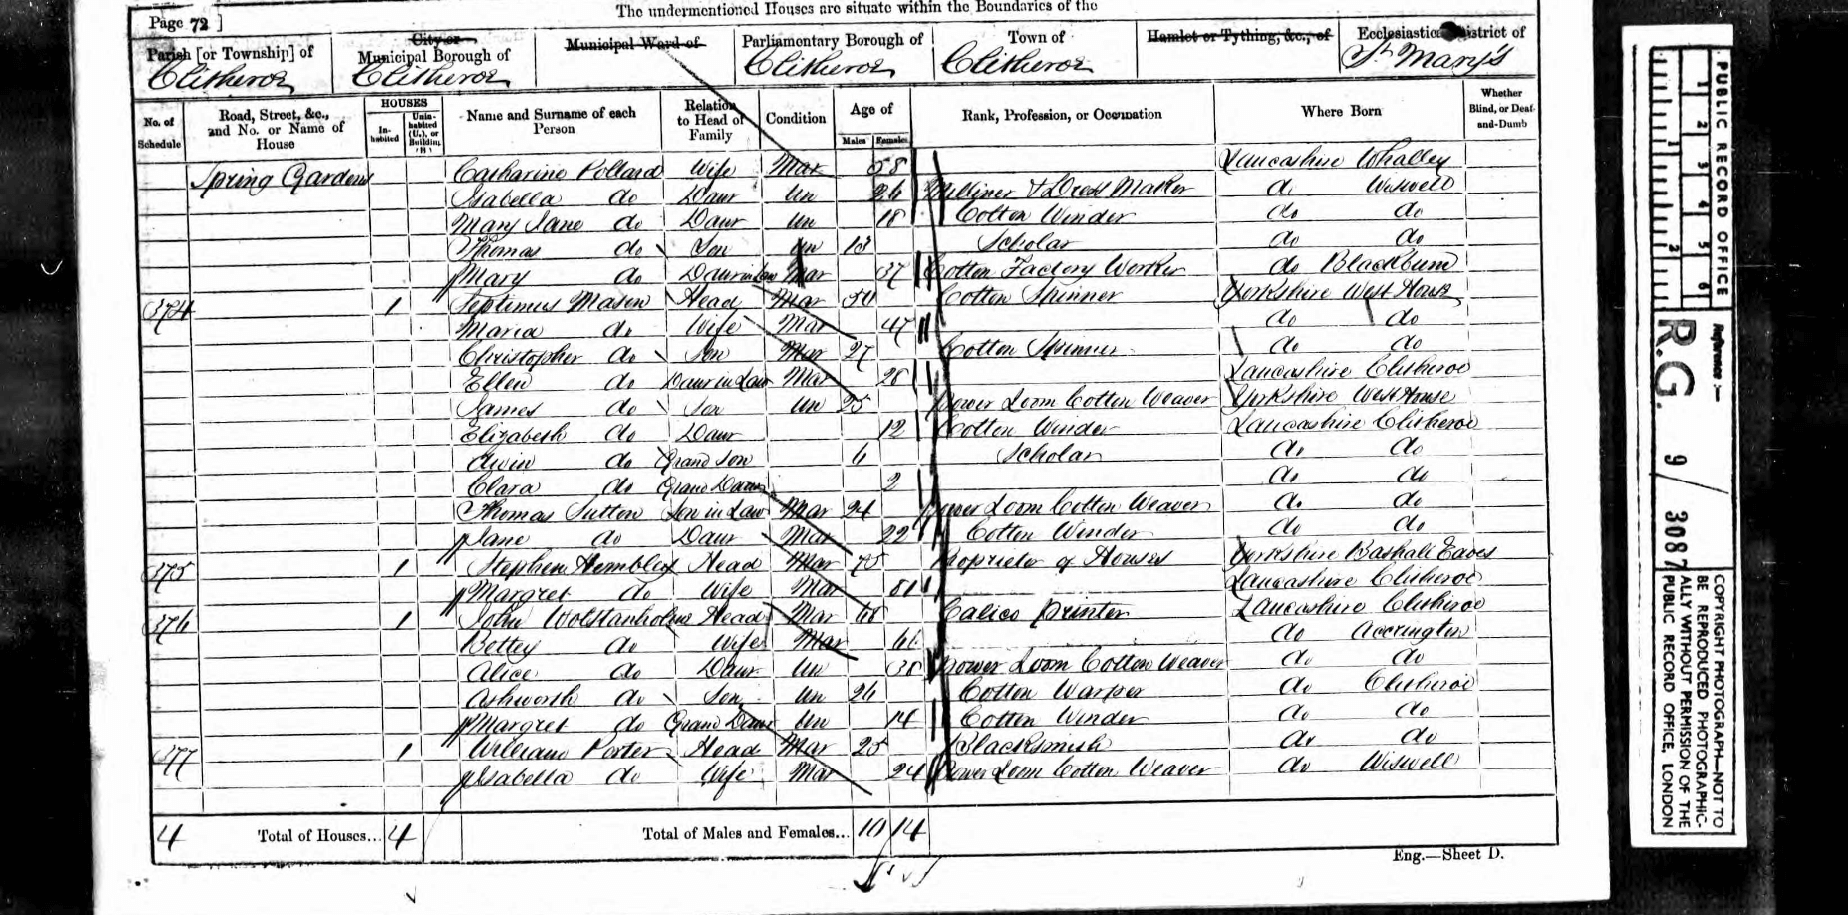 The undermentioned Houses are situate within the Boundaries of the
Page 72 ]
Parish [or Township] of Clitheroe
City or Municipal Borough of Clitheroe
Municipal Ward of
Parliamentary Borough of Clitheroe
Town of Clitheroe
Hamlet or Tything, &c., of
Ecclesiastical District of St Mary's
No. of Schedule
Road, Street, &c., and No. or Name of House
HOUSES
In-habited
Unin-habited (U.), or Building (B)
Name and Surname of each Person
Relation to Head of Family
Condition
Age of
Males
Females
Rank, Profession, or Occupation
Where Born
Whether Blind, or Deaf-and-Dumb
Spring Gardens Catharine Pollard Wife Mar 58 Lancashire Whalley
Isabella do Daur Un 26 Milliner & Dress Maker do Wiswell
Mary Jane do Daur Un 18 Cotton Winder do do
Thomas do Son Un 13 Scholar do do
Mary do Daur in Law Mar 37 Cotton Factory Worker do Blackburn
374 1 Septimus Mason Head Mar 50 Cotton Spinner Yorkshire West House
Maria do Wife Mar 47 do do
Christopher do Son Mar 27 Cotton Spinner do do
Ellen do Daur in Law Mar 28 Lancashire Clitheroe
James do Son Un 25 Power Loom Cotton Weaver Yorkshire West House
Elizabeth do Daur 12 Cotton Winder Lancashire Clitheroe
do Grand Son 6 Scholar do do
Clara do Grand Daur 2 do do
Thomas Sutton Son in Law Mar 24 Power Loom Cotton Weaver do do
Jane do Daur Mar 22 Cotton Winder do do
375 1 Stephen Head Mar 75 Proprietor of Houses Yorkshire Bashall Eaves
Margret do Wife Mar 81 Lancashire Clitheroe
376 1 John Wolstanholme Head Mar 68 Calico Printer Lancashire Clitheroe
Bettey do Wife Mar 66 do Accrington
Alice do Daur Un 38 Power Loom Cotton Weaver do do
Ashworth do Son Un 26 Cotton Warper do Clitheroe
Margret do Grand Daur Un 14 Cotton Winder do do
377 1 William Porter Head Mar 25 Blacksmith do do
Isabella do Wife Mar 24 Power Loom Cotton Weaver do Wiswell
4 Total of Houses... 4 Total of Males and Females... 10 14
Eng.—Sheet D.
PUBLIC RECORD OFFICE
1 2 3 4 5 6
1 2
Reference :—
R.G. 9/3087
COPYRIGHT PHOTOGRAPH—NOT TO
BE REPRODUCED PHOTOGRAPHIC-
ALLY WITHOUT PERMISSION OF THE
PUBLIC RECORD OFFICE, LONDON